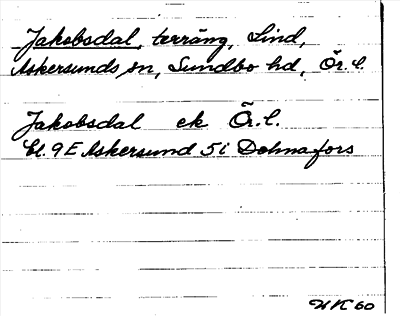 Jakobsdal, terräng, Lind,
Askersunds sn, Sundbo hd, Ör. l.
Jakobsdal ek Ör. l.
Bl. 9E Askersund 5i Dohnafors
HK 60